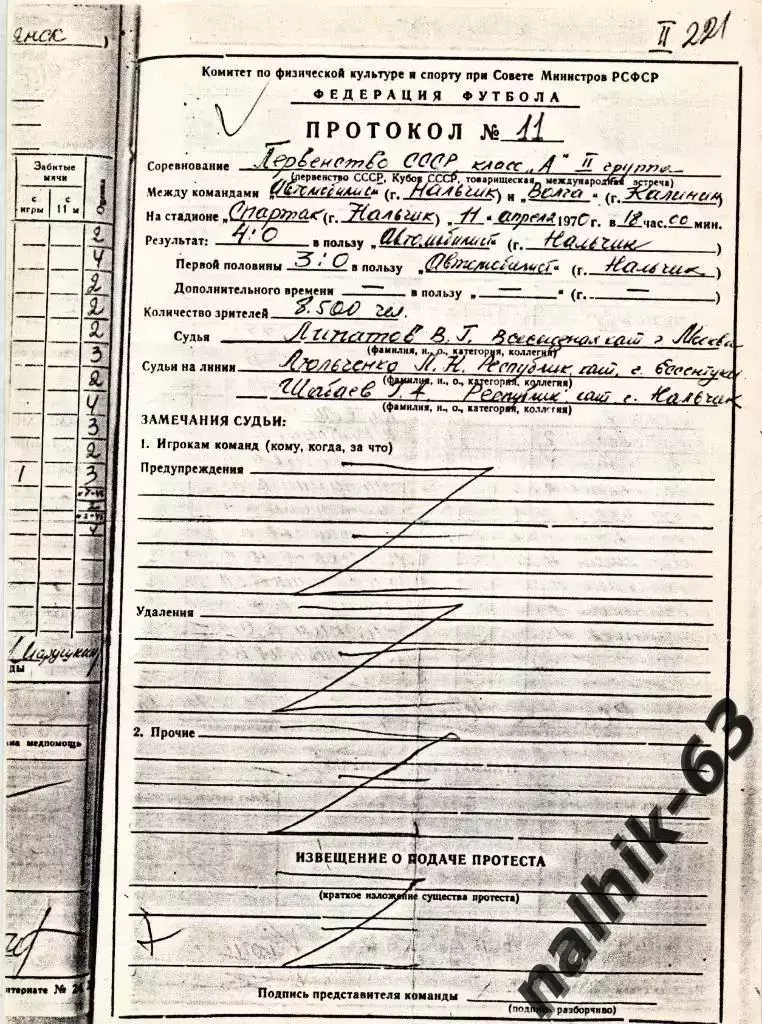 янск
II 221
Комитет по физической культуре и спорту при Совете Министров РСФСР
ФЕДЕРАЦИЯ ФУТБОЛА
ПРОТОКОЛ № 11
Соревнование Первенство СССР класс "А" II группа
(первенство СССР, Кубок СССР, товарищеская, международная встреча)
Между командами „Автомобилист" (г. Нальчик) и „Волга" (г. Калинин)
На стадионе Спартак (г. Нальчик) „11" апреля 1970 г. в 18 час. 00 мин.
Результат: 4:0 в пользу „Автомобилист" (г. Нальчик)
Первой половины 3:0 в пользу „Автомобилист" (г. Нальчик)
Дополнительного времени — в пользу „ — " (г. — )
Количество зрителей 8.500 чел.
Судья Липатов В.Г. Всесоюзная кат г Москва
(фамилия, и., о., категория, коллегия)
Судьи на линии Люльченко Л.Н. Республик. кат. г. Ессентуки
(фамилия, и., о., категория, коллегия)
Шабаев Г.А. Республик кат г. Нальчик
(фамилия, и., о., категория, коллегия)
ЗАМЕЧАНИЯ СУДЬИ:
1. Игрокам команд (кому, когда, за что)
Предупреждения
Удаления
2. Прочие
ИЗВЕЩЕНИЕ О ПОДАЧЕ ПРОТЕСТА
(краткое изложение существа протеста)
Подпись представителя команды
(подпись разборчиво)
Забитые мячи
с игры
с 11 м
Оценка
2
4
2
2
2
3
2
4
3
2
1 3
2
4
Марушкин
ды
на медпомощь
интернате №
nalhik-63